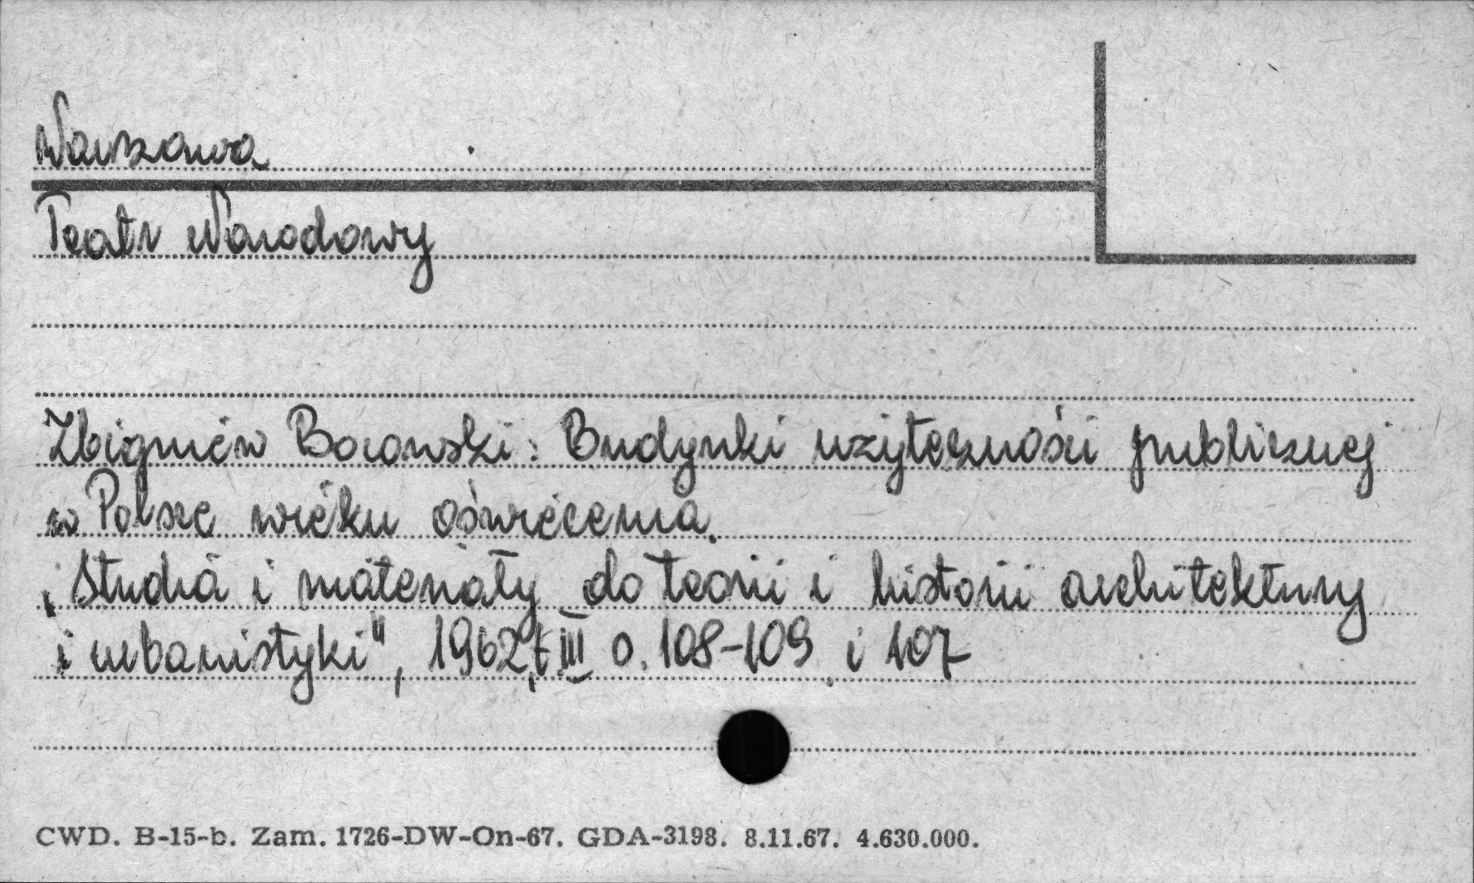 Warszawa
Teatr Narodowy
Zbigniew Borowski: Budynki użyteczności publicznej
w Polsce wieku oświecenia.
„Studia i materiały do teorii i historii architektury
i urbanistyki", 1962, t. III s. 108-109 i 107
CWD. B-15-b. Zam. 1726-DW-On-67. GDA-3198. 8.11.67. 4.630.000.